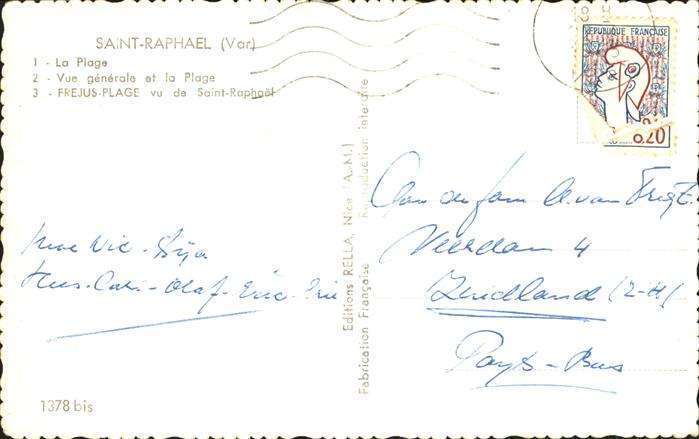 SAINT-RAPHAEL (Var)
1 - La Plage
2 - Vue générale et la Plage
3 - FREJUS-PLAGE vu de Saint-Raphaël
RÉPUBLIQUE FRANÇAISE
0,20
Editions RELLA, Nice (A.M.)
Fabrication Française Reproduction interdite
Aan de fam
van
4
Zuidland (Z-H)
Pays-Bas
Olaf - Eric
1378 bis